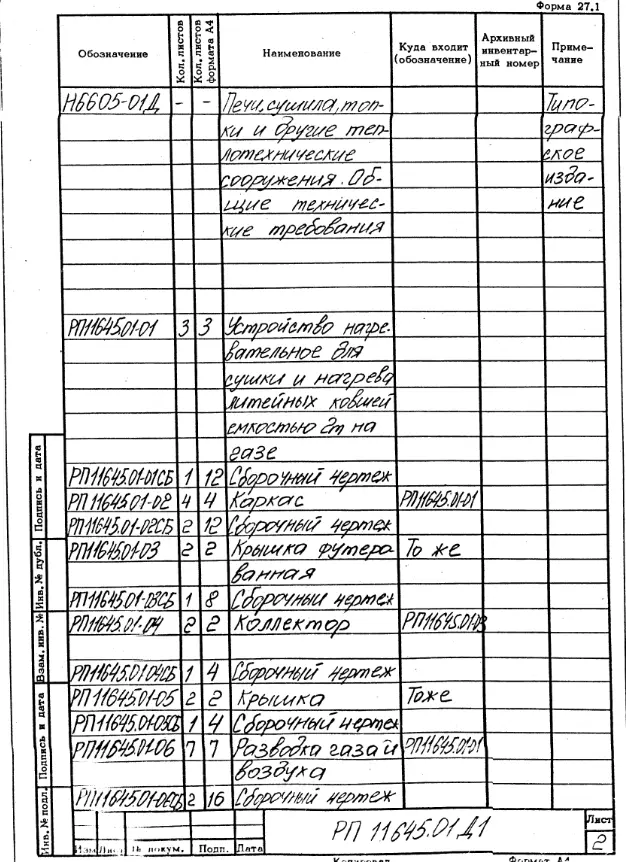 Форма 27.1
Обозначение Кол. листов Кол. листов формата А4 Наименование Куда входит (обозначение) Архивный инвентар-ный номер Приме-чание
Н6605-01Д - - Печи, сушила, топ- Типо-
ки и другие теп- граф-
лотехнические ское
сооружения. Об- изда-
щие техничес- ние
кие требования
РП11645.01-01 3 3 Устройство нагре-
вательное для
сушки и нагрева
литейных ковшей
емкостью 2т на
газе
РП11645.01-01СБ 1 12 Сборочный чертеж
РП11645.01-02 4 4 Каркас РП11645.01-01
РП11645.01-02СБ 2 12 Сборочный чертеж
РП11645.01-03 2 2 Крышка футеро- То же
ванная
РП11645.01-03СБ 1 8 Сборочный чертеж
РП11645.01-04 2 2 Коллектор РП11645.01-03
РП11645.01-04СБ 1 4 Сборочный чертеж
РП11645.01-05 2 2 Крышка То же
РП11645.01-05СБ 1 4 Сборочный чертеж
РП11645.01-06 7 7 Разводка газа и РП11645.01-01
воздуха
РП11645.01-06СБ 2 16 Сборочный чертеж
Подпись и дата
Инв. № дубл.
Взам. инв. №
Подпись и дата
Инв. № подл.
РП 11645.01Д1
Лист
2
Изм Лист № докум. Подп. Дата
Копировал Формат А4